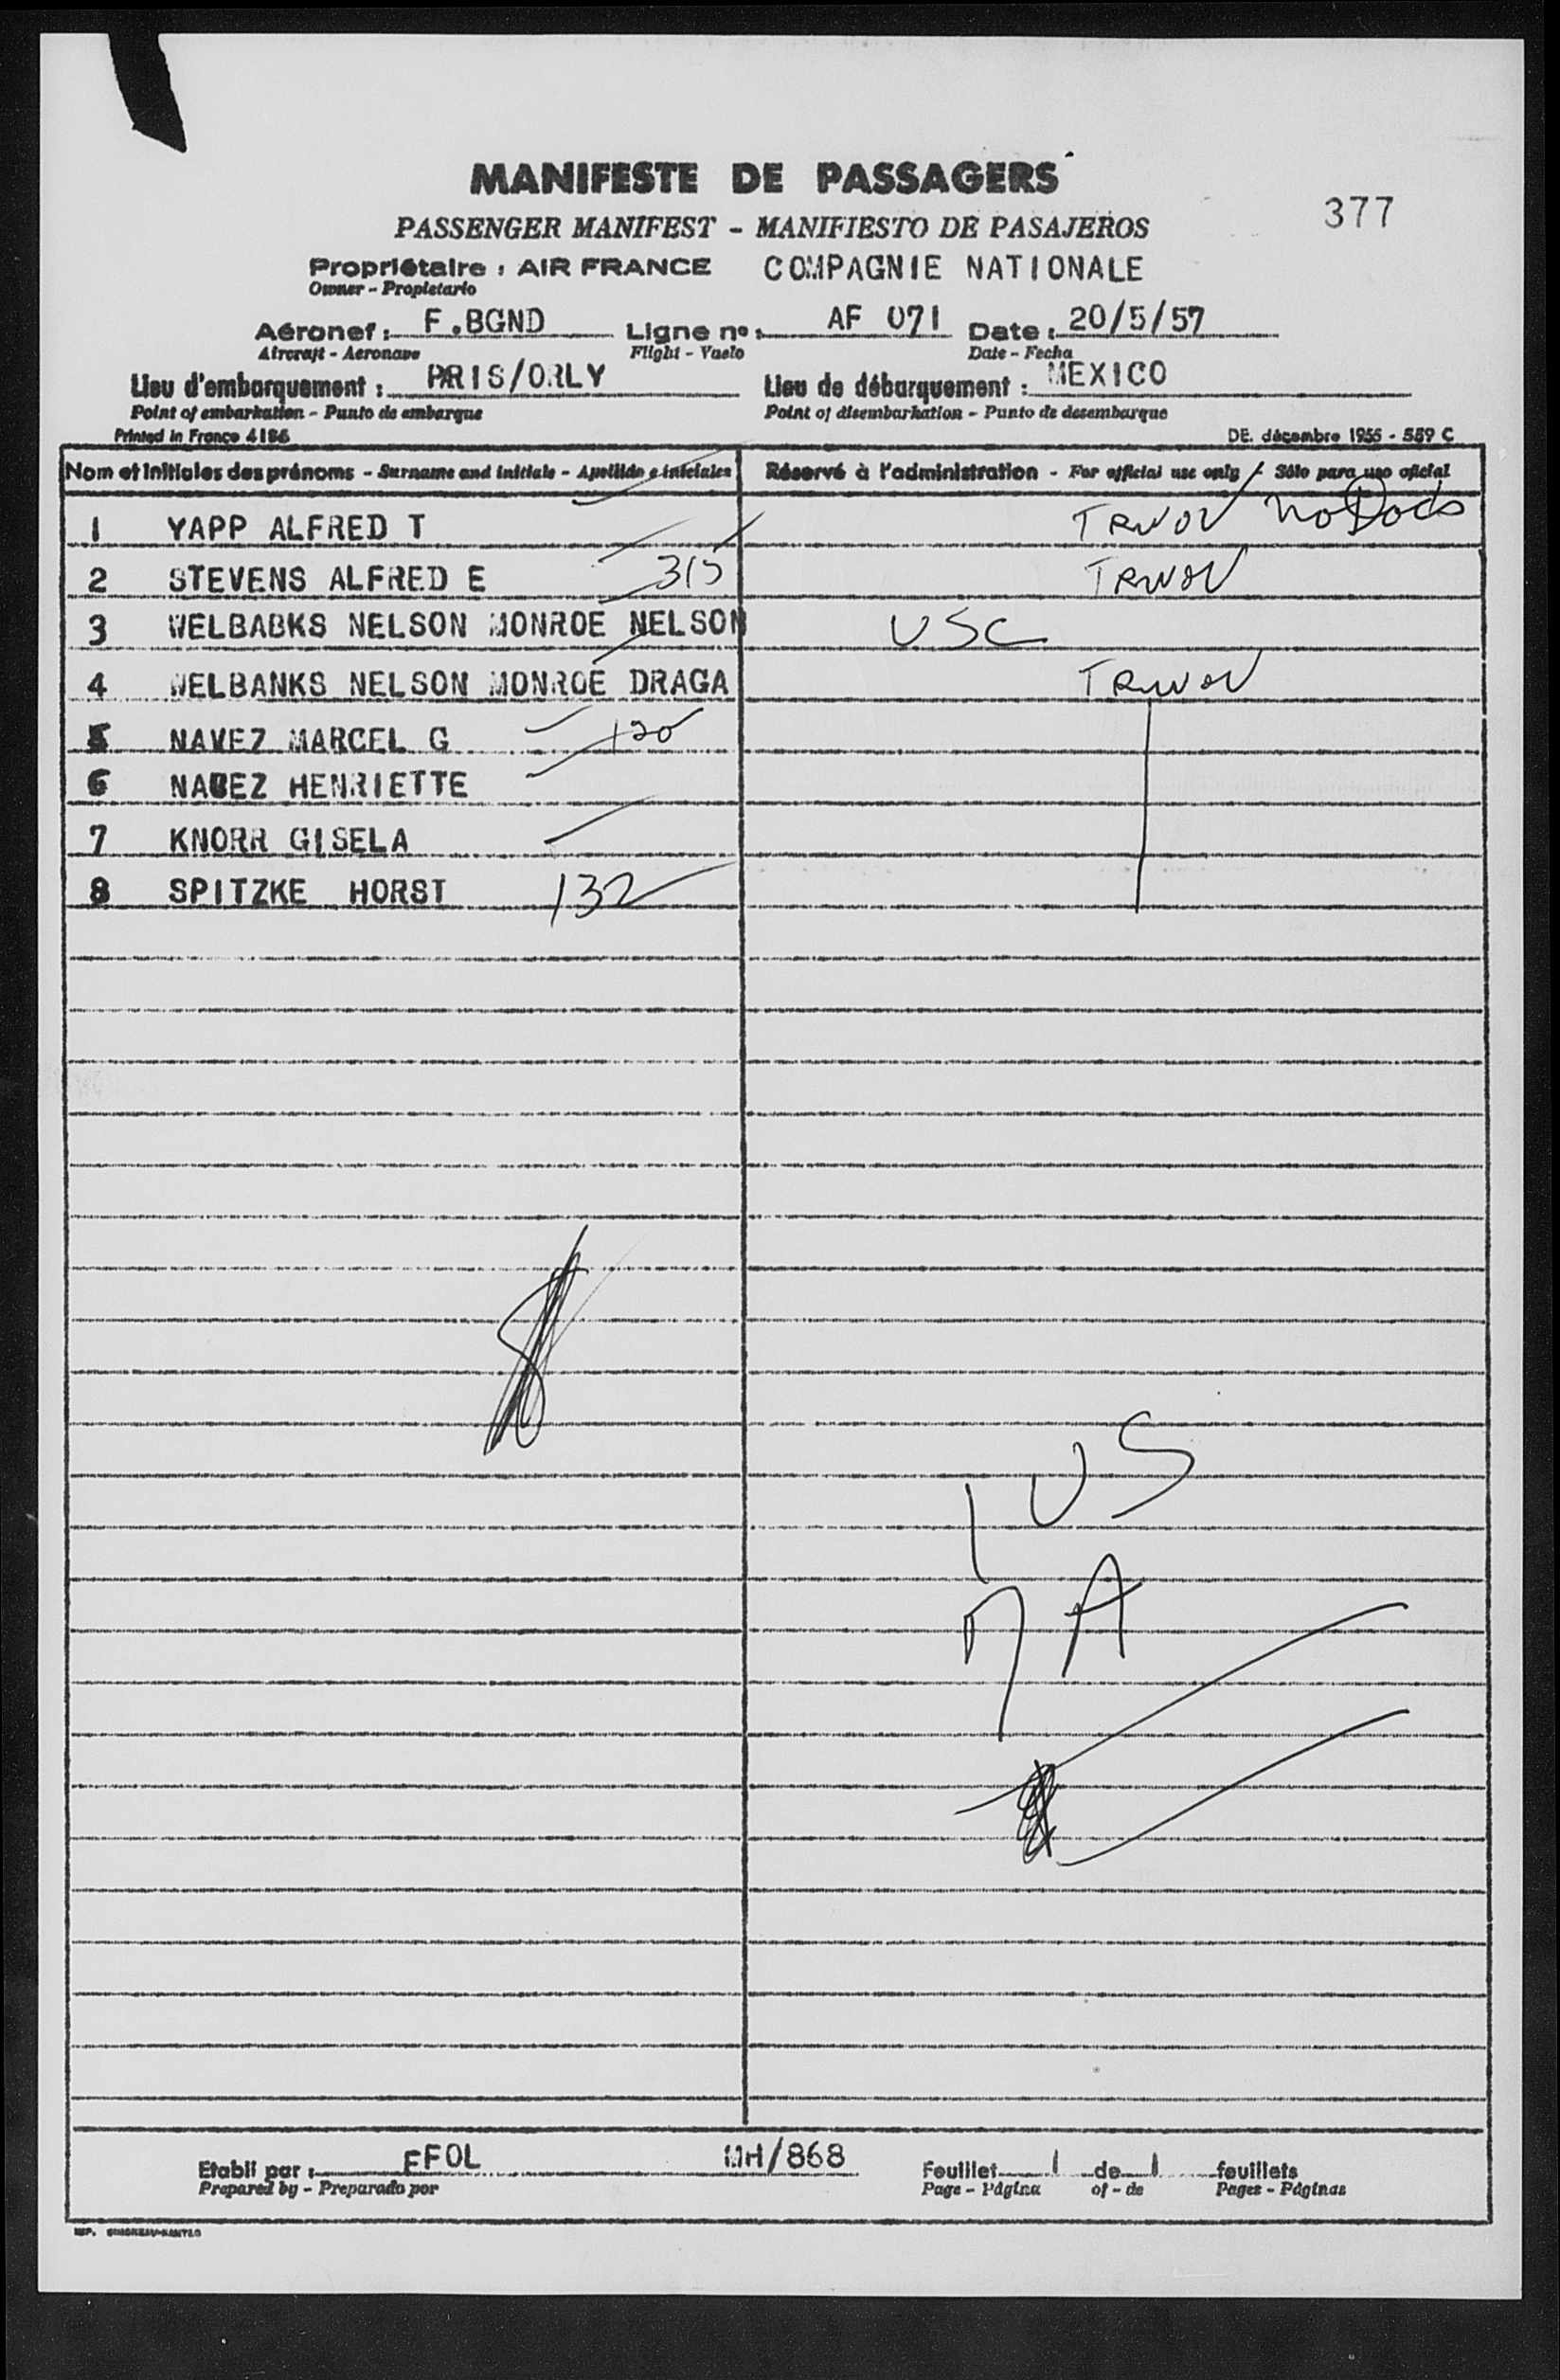 MANIFESTE DE PASSAGERS
PASSENGER MANIFEST - MANIFIESTO DE PASAJEROS
377
Propriétaire : AIR FRANCE COMPAGNIE NATIONALE
Owner - Propietario
Aéronef : F.BGND Ligne nº : AF 071 Date : 20/5/57
Aircraft - Aeronave Flight - Vuelo Date - Fecha
Lieu d'embarquement : PARIS/ORLY Lieu de débarquement : MEXICO
Point of embarkation - Punto de embarque Point of disembarkation - Punto de desembarque
Printed in France 4186 DE. décembre 1955 - 559 C
Nom et Initiales des prénoms - Surname and initials - Apellido e iniciales Réservé à l'administration - For official use only - Sólo para uso oficial
1 YAPP ALFRED T TRWOV no Docs
2 STEVENS ALFRED E 315 TRWOV
3 WELBABKS NELSON MONROE NELSON USC
4 WELBANKS NELSON MONROE DRAGA TRWOV
5 NAVEZ MARCEL G 120
6 NABEZ HENRIETTE
7 KNORR GISELA
8 SPITZKE HORST 132
8
1 US
7 A
Etabli par : EFOL MH/868 Feuillet 1 de 1 feuillets
Prepared by - Preparado por Page - Página of - de Pages - Páginas